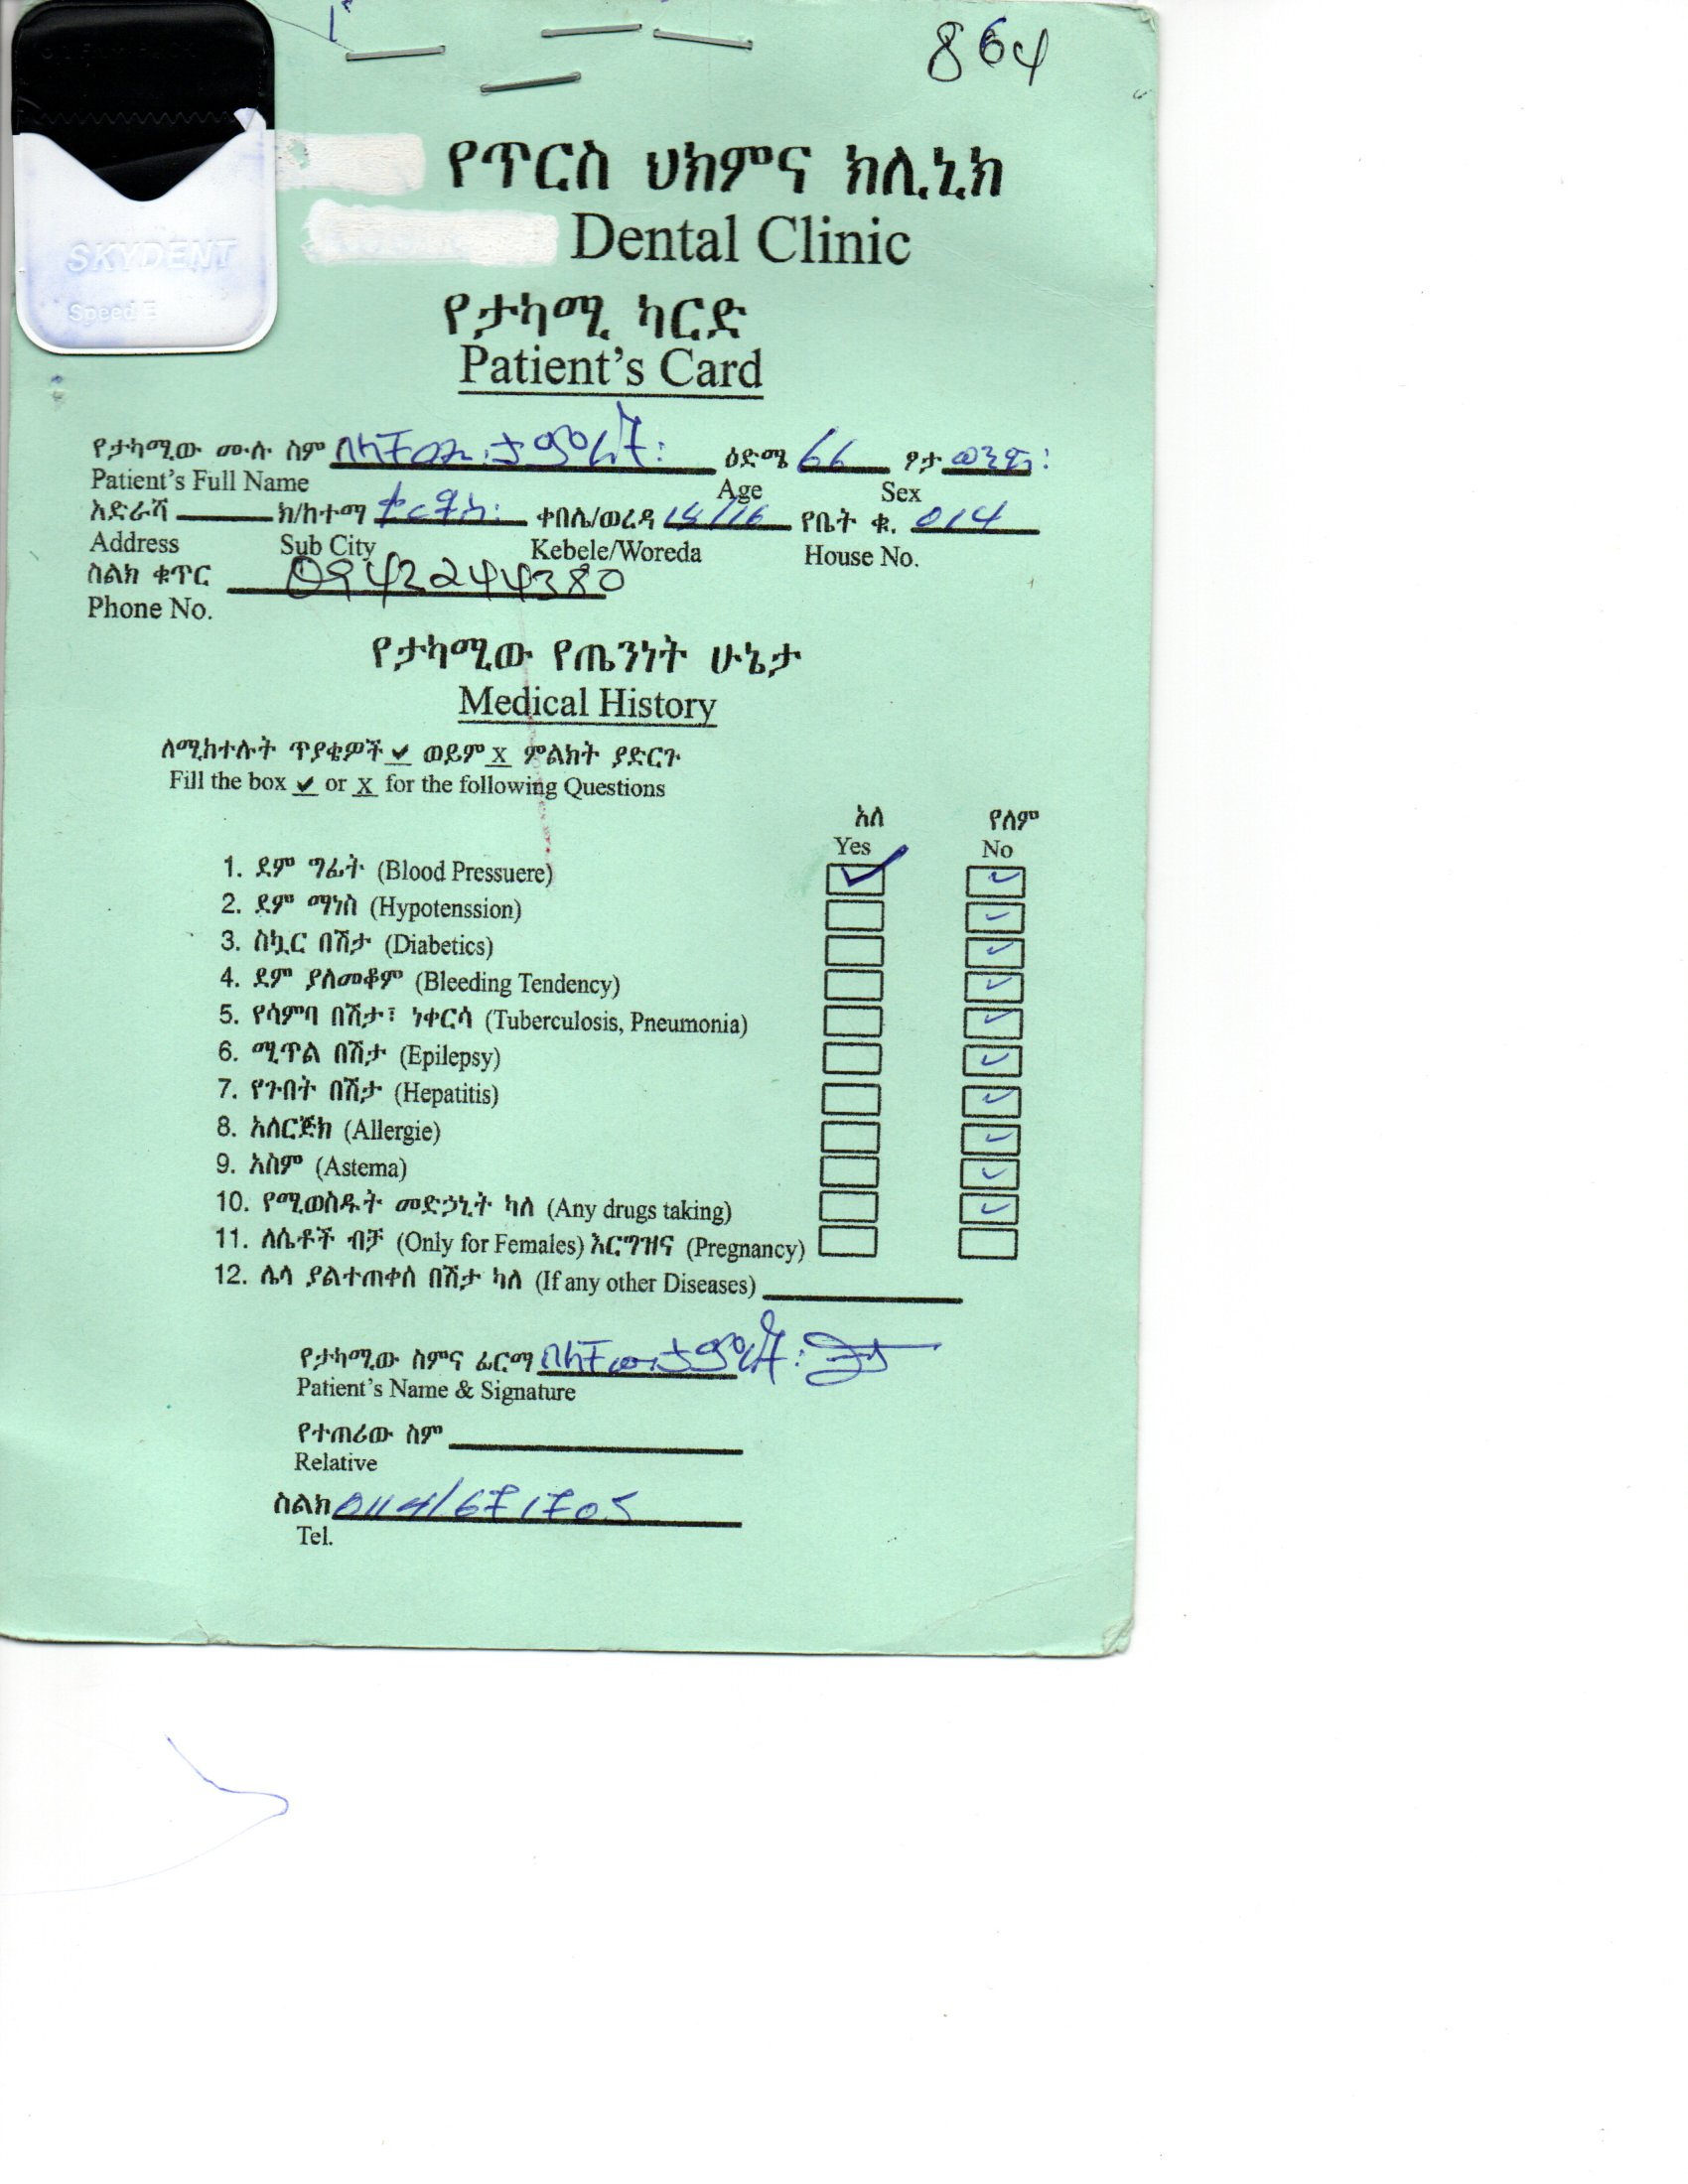 864
SKYDENT
Speed E
የጥርስ ህክምና ክሊኒክ
Dental Clinic
የታካሚ ካርድ
Patient's Card
የታካሚው ሙሉ ስም በላቸው ታምራት፡ ዕድሜ 66 ፆታ ወንድ፡
Patient's Full Name Age Sex
አድራሻ ክ/ከተማ ቂርቆስ፡ ቀበሌ/ወረዳ 15/16 የቤት ቁ. 014
Address Sub City Kebele/Woreda House No.
ስልክ ቁጥር 0942244380
Phone No.
የታካሚው የጤንነት ሁኔታ
Medical History
ለሚከተሉት ጥያቄዎች ✔ ወይም X ምልክት ያድርጉ
Fill the box ✔ or X for the following Questions
አለ የለም
Yes No
1. ደም ግፊት (Blood Pressuere) ✓ ✓
2. ደም ማነስ (Hypotenssion) ✓
3. ስኳር በሽታ (Diabetics) ✓
4. ደም ያለመቆም (Bleeding Tendency) ✓
5. የሳምባ በሽታ፣ ነቀርሳ (Tuberculosis, Pneumonia) ✓
6. ሚጥል በሽታ (Epilepsy) ✓
7. የጉበት በሽታ (Hepatitis) ✓
8. አለርጅክ (Allergie) ✓
9. አስም (Astema) ✓
10. የሚወስዱት መድኃኒት ካለ (Any drugs taking) ✓
11. ለሴቶች ብቻ (Only for Females) እርግዝና (Pregnancy)
12. ሌላ ያልተጠቀሰ በሽታ ካለ (If any other Diseases)
የታካሚው ስምና ፊርማ በላቸው ታምራት፡
Patient's Name & Signature
የተጠሪው ስም
Relative
ስልክ 0114/671705
Tel.